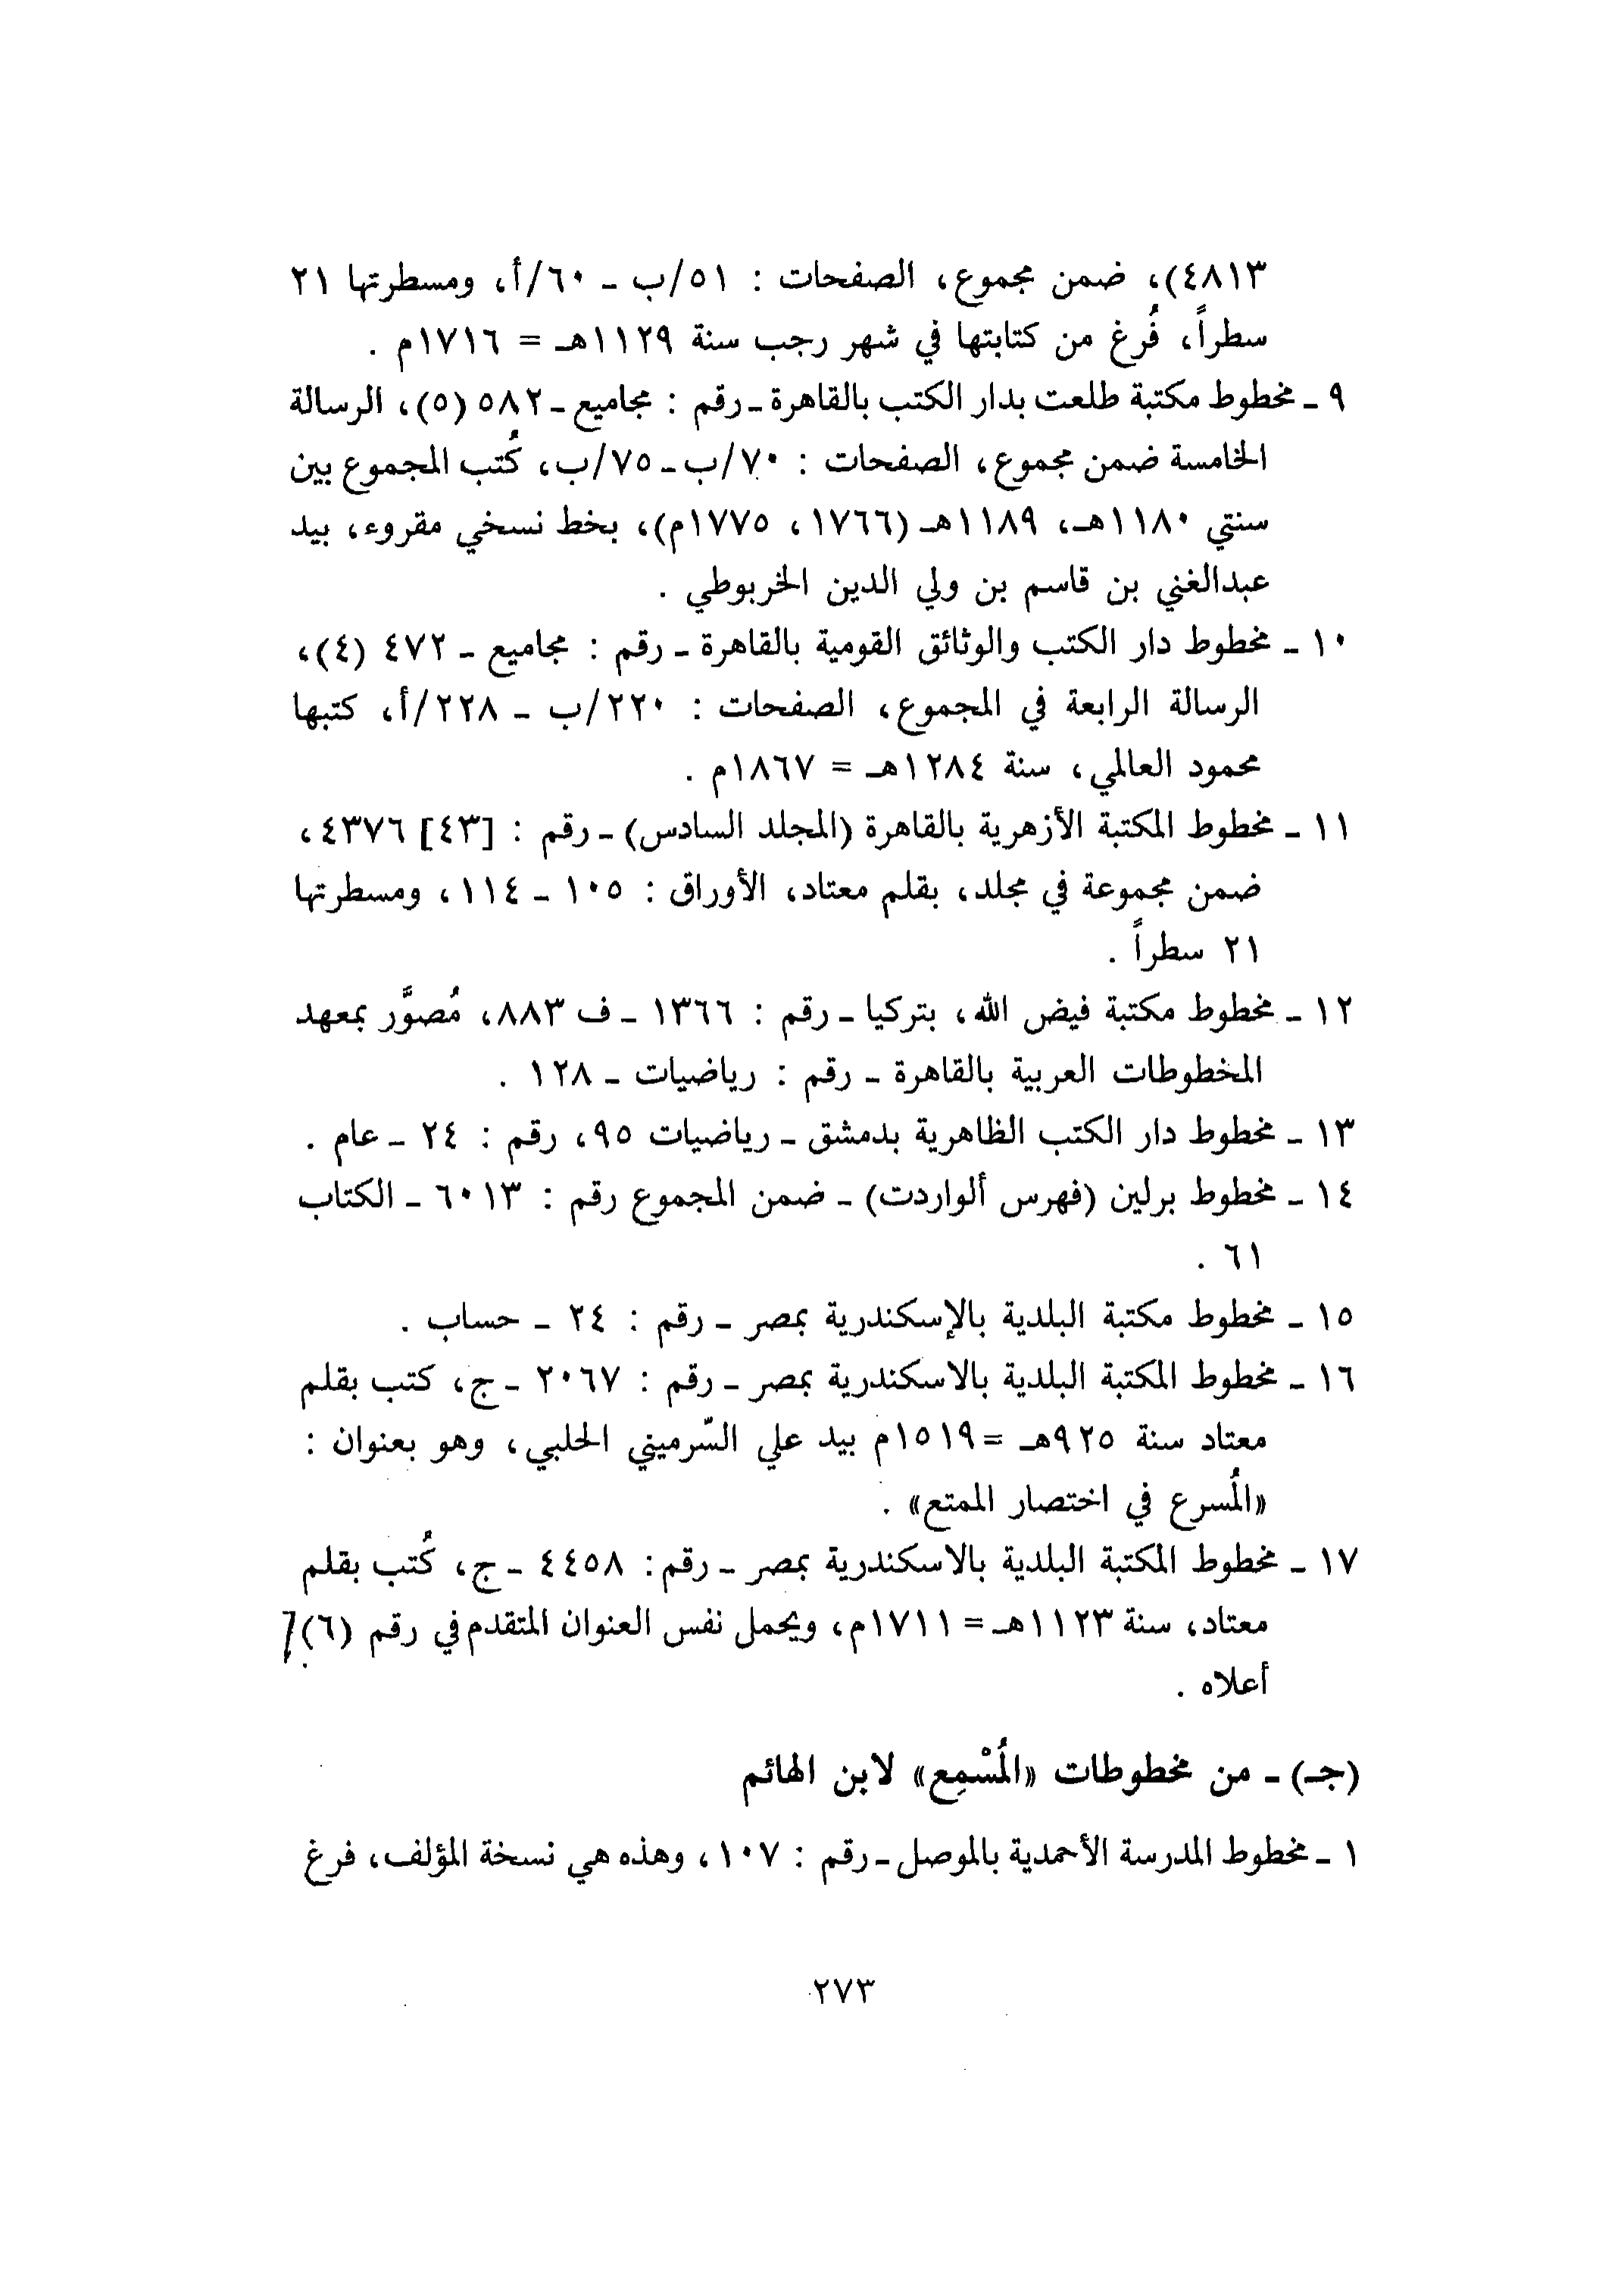 ٤٨١٣)، ضمن مجموع، الصفحات : ٥١/ب ـ ٦٠/أ، ومسطرتها ٢١
سطراً، فُرغ من كتابتها في شهر رجب سنة ١١٢٩هـ = ١٧١٦م .
٩ ـ مخطوط مكتبة طلعت بدار الكتب بالقاهرة ـ رقم : مجاميع ـ ٥٨٢ (٥)، الرسالة
الخامسة ضمن مجموع، الصفحات : ٧٠/ب ـ ٧٥/ب، كُتب المجموع بين
سنتي ١١٨٠هـ، ١١٨٩هـ (١٧٦٦ ، ١٧٧٥م)، بخط نسخي مقروء، بيد
عبدالغني بن قاسم بن ولي الدين الخربوطي .
١٠ ـ مخطوط دار الكتب والوثائق القومية بالقاهرة ـ رقم : مجاميع ـ ٤٧٢ (٤)،
الرسالة الرابعة في المجموع، الصفحات : ٢٢٠/ب ـ ٢٢٨/أ، كتبها
محمود العالمي، سنة ١٢٨٤هـ = ١٨٦٧م .
١١ ـ مخطوط المكتبة الأزهرية بالقاهرة (المجلد السادس) ـ رقم : [٤٣] ٤٣٧٦،
ضمن مجموعة في مجلد، بقلم معتاد، الأوراق : ١٠٥ ـ ١١٤، ومسطرتها
٢١ سطراً .
١٢ ـ مخطوط مكتبة فيض الله، بتركيا ـ رقم : ١٣٦٦ ـ ف ٨٨٣، مُصوَّر بمعهد
المخطوطات العربية بالقاهرة ـ رقم : رياضيات ـ ١٢٨ .
١٣ ـ مخطوط دار الكتب الظاهرية بدمشق ـ رياضيات ٩٥، رقم : ٢٤ ـ عام .
١٤ ـ مخطوط برلين (فهرس ألواردت) ـ ضمن المجموع رقم : ٦٠١٣ ـ الكتاب
٦١ .
١٥ ـ مخطوط مكتبة البلدية بالإسكندرية بمصر ـ رقم : ٢٤ ـ حساب .
١٦ ـ مخطوط المكتبة البلدية بالاسكندرية بمصر ـ رقم : ٢٠٦٧ ـ ج، كتب بقلم
معتاد سنة ٩٢٥هـ = ١٥١٩م بيد علي السّرميني الحلبي، وهو بعنوان :
«المُسرع في اختصار الممتع» .
١٧ ـ مخطوط المكتبة البلدية بالاسكندرية بمصر ـ رقم: ٤٤٥٨ ـ ج، كُتب بقلم
معتاد، سنة ١١٢٣هـ = ١٧١١م، ويحمل نفس العنوان المتقدم في رقم (٦)
أعلاه .
(جـ) ـ من مخطوطات «المُسْمِع» لابن الهائم
١ ـ مخطوط المدرسة الأحمدية بالموصل ـ رقم : ١٠٧، وهذه هي نسخة المؤلف، فرغ
٢٧٣